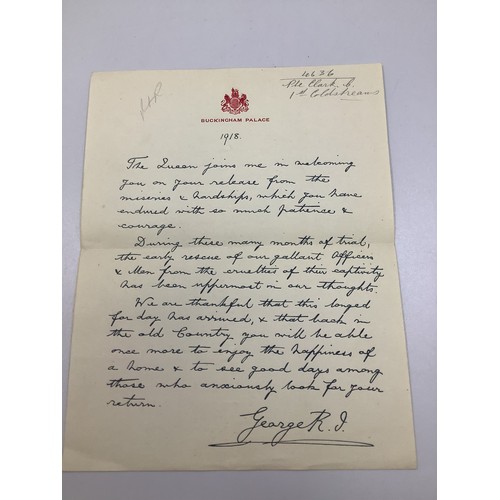 4626
Pte Clark. C.
1st Coldstreams
BUCKINGHAM PALACE
1918.
The Queen joins me in welcoming
you on your release from the
miseries & hardships, which you have
endured with so much patience &
courage.
During these many months of trial,
the early rescue of our gallant Officers
& Men from the cruelties of their captivity
has been uppermost in our thoughts.
We are thankful that this longed
for day has arrived, & that back in
the old Country you will be able
once more to enjoy the happiness of
a home & to see good days among
those who anxiously look for your
return.
George R.I.